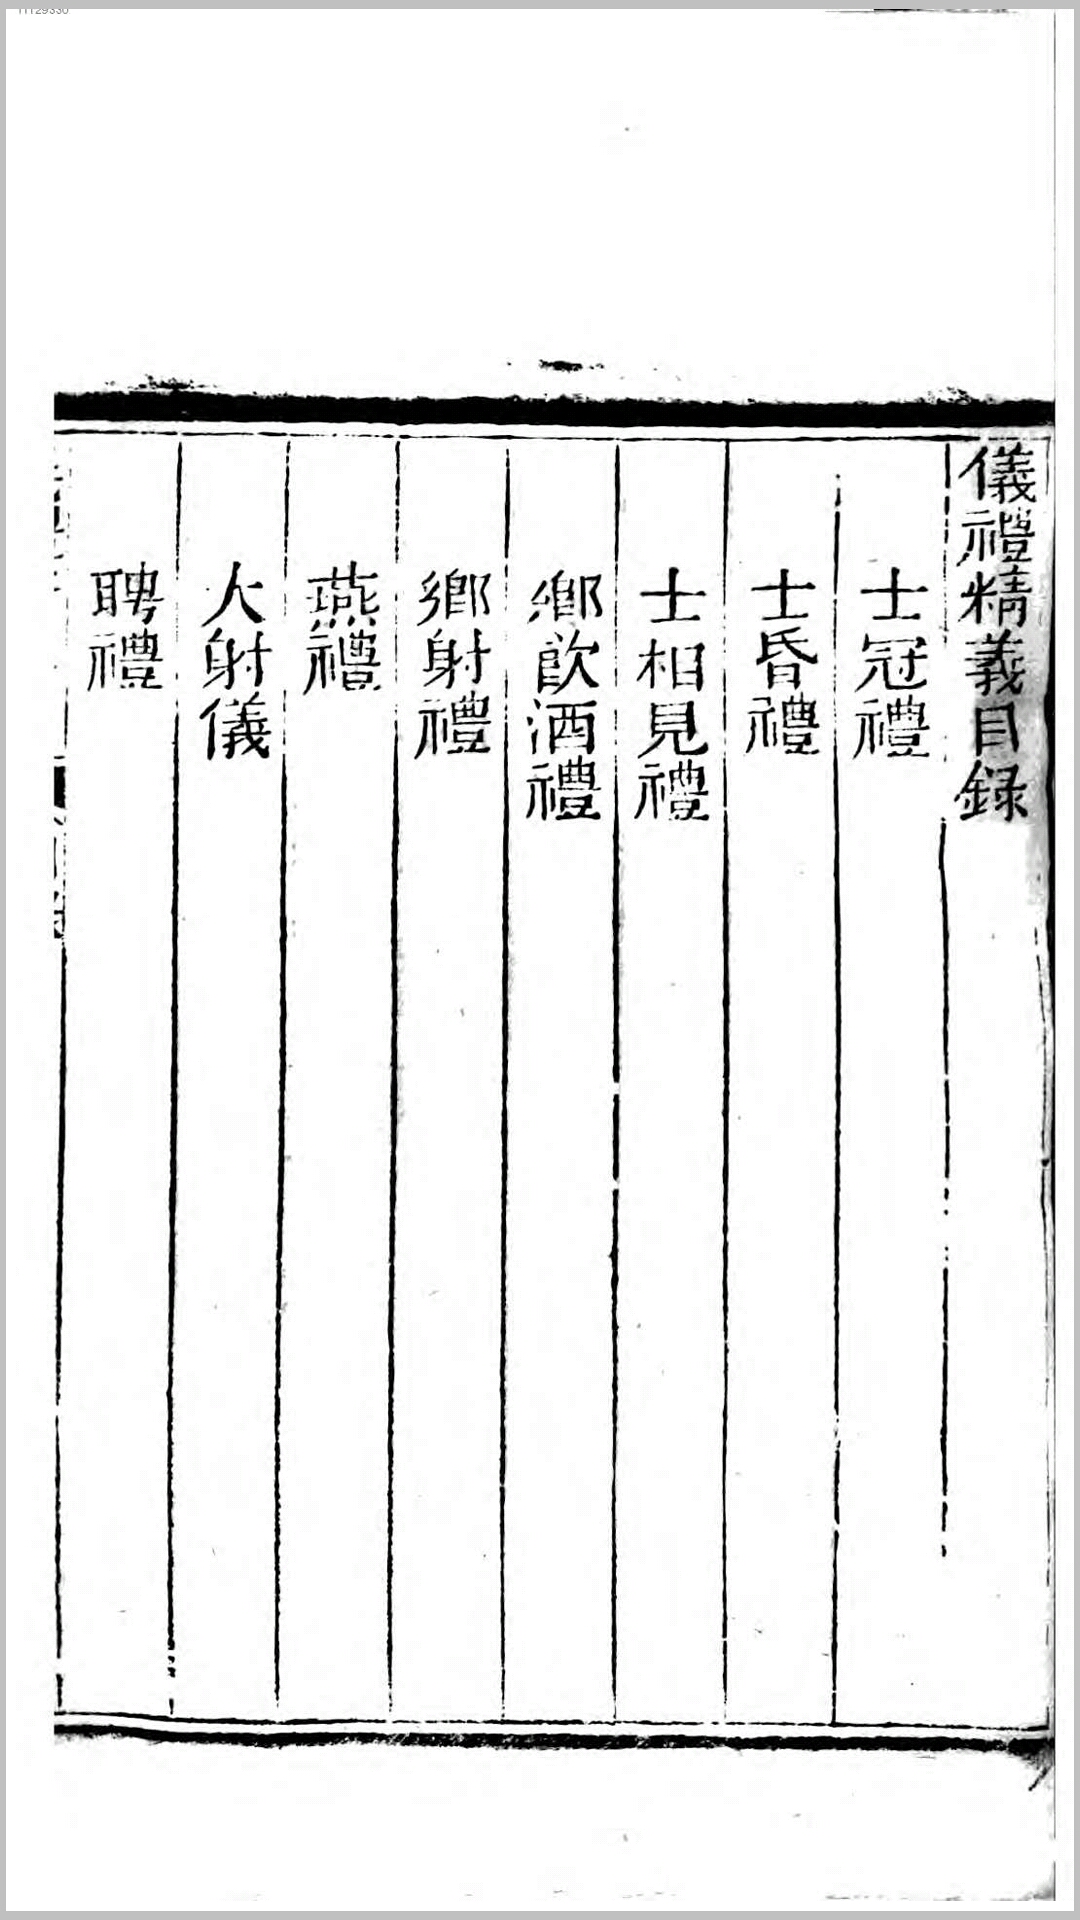 儀禮精義目録
士冠禮
士昏禮
士相見禮
鄉飲酒禮
鄉射禮
燕禮
大射儀
聘禮